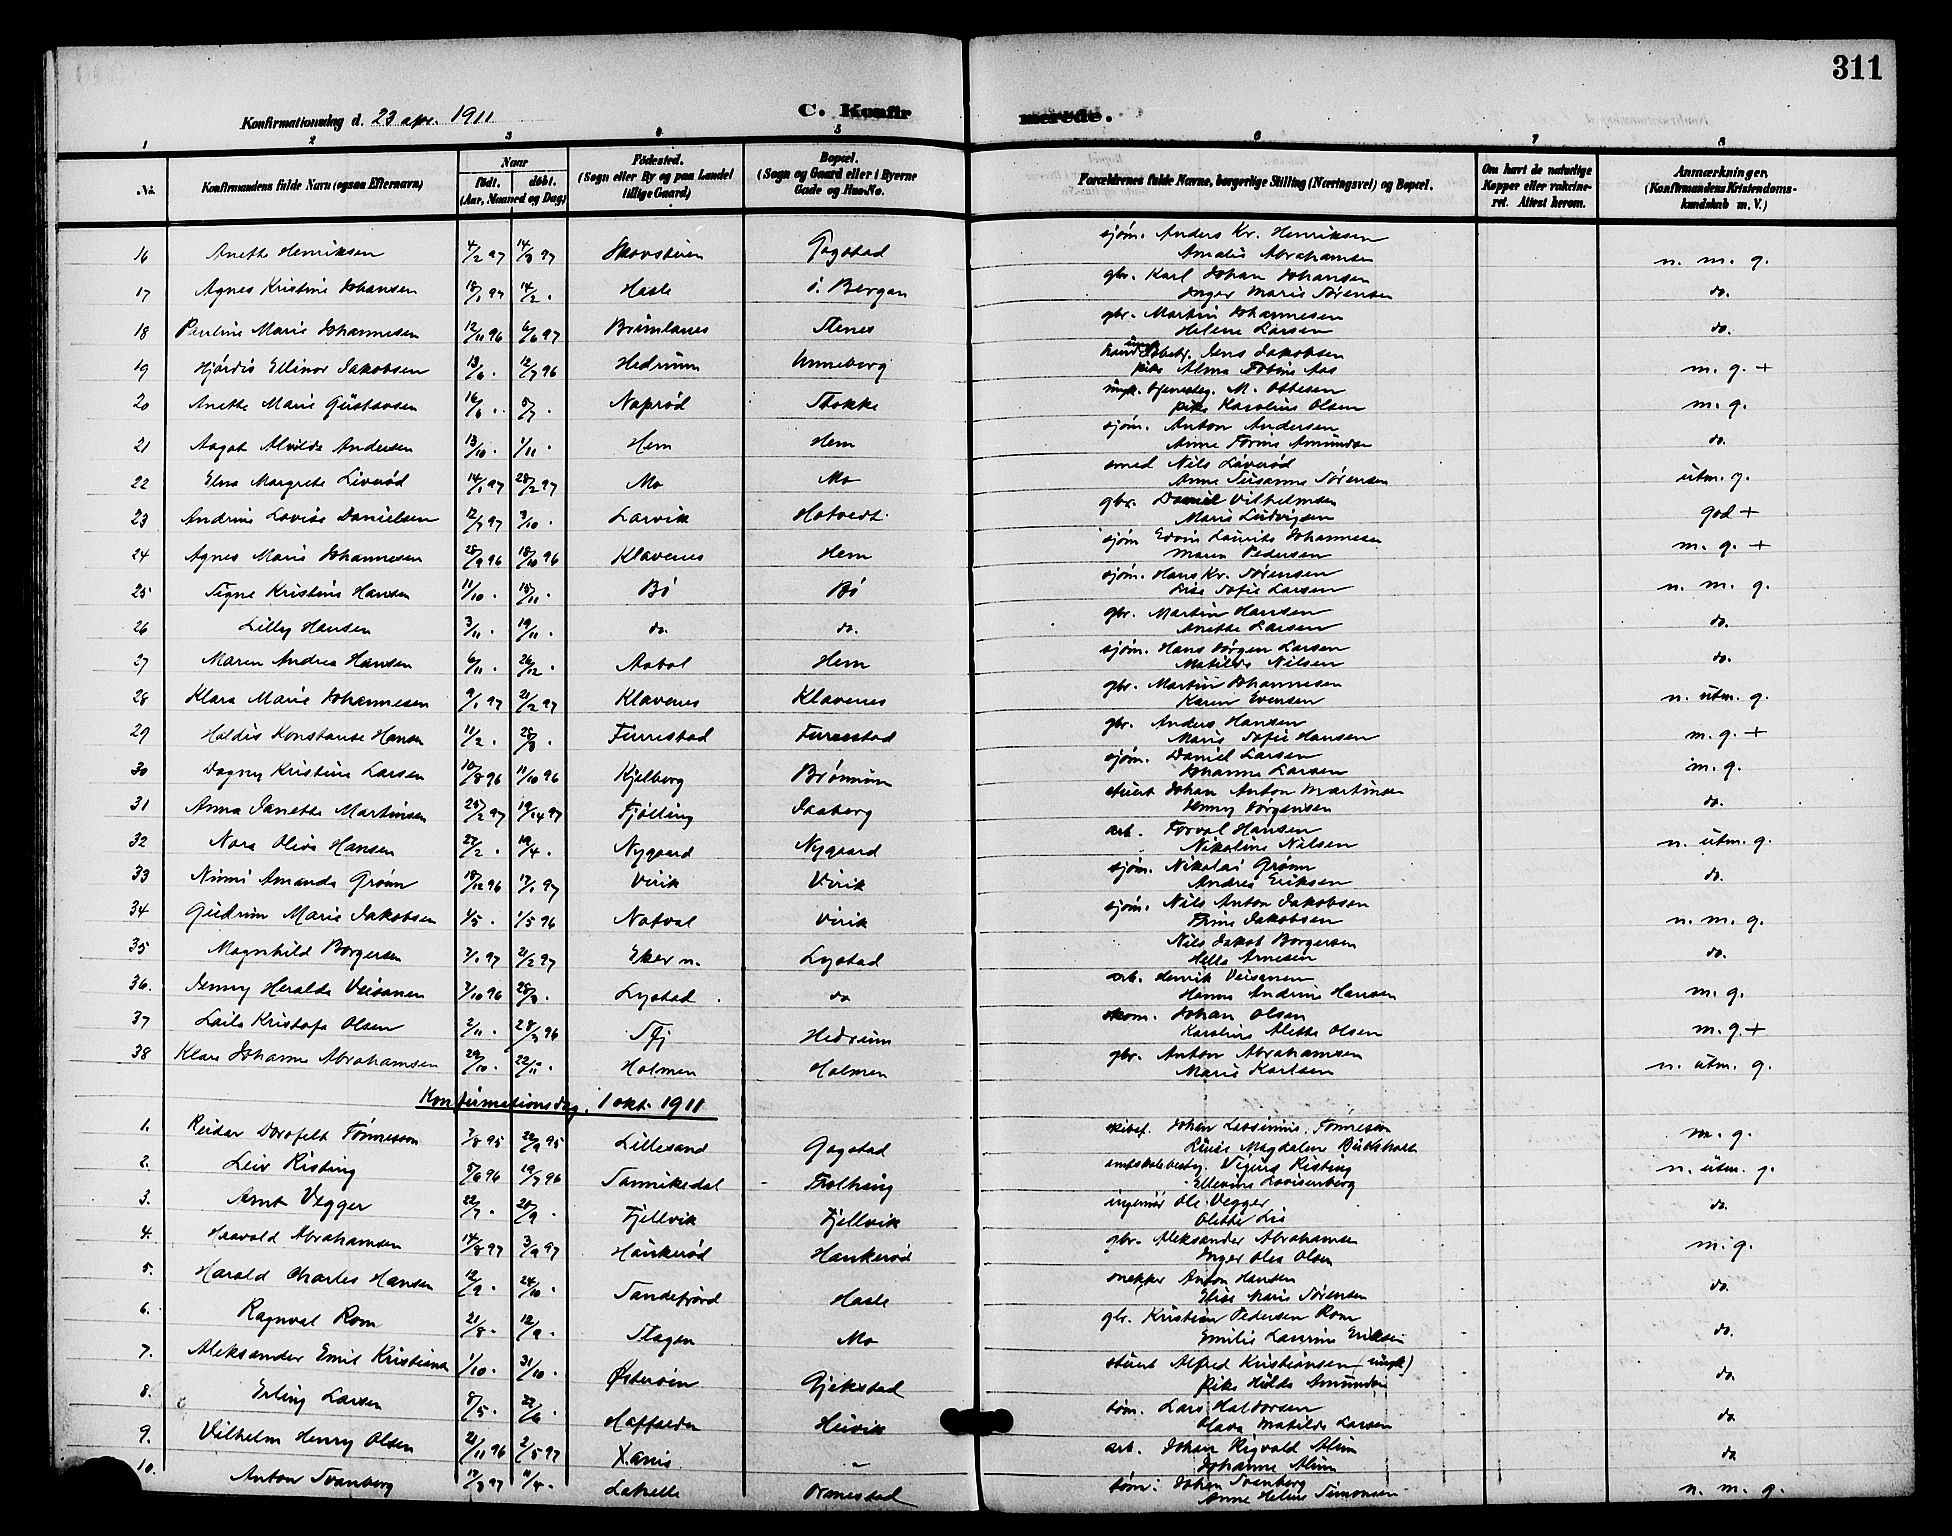 311
Konfirmationsdag d. 23 apr. 1911 C. Konfirmerede.
1 2 3 4 5 6 7 8
No. Konfirmandens fulde Navn (ogsaa Efternavn) Naar født. døbt. (Aar, Maaned og Dag) Fødested. (Sogn eller By og paa Landet tillige Gaard) Bopæl. (Sogn og Gaard eller i Byerne Gade og Hus-No. Forældrenes fulde Navne, borgerlige Stilling (Næringsvei) og Bopæl. Om havt de naturlige Kopper eller vakcineret. Attest herom. Anmærkninger. (Konfirmandens Kristendomskundskab m. V.)
16 Anette Henriksen 4/2 97 14/3 97 Gogstad sjøm. Anders Kr. Henriksen n. m. g.
Amalie Abrahamsen
17 Agnes Kristine Johansen 18/1 97 14/2 . Hasle ö. Bergan gbr. Karl Johan Johansen do.
Inger Marie Sørensen
18 Pauline Marie Johannesen 12/11 96 6/6 97 Brunlanes Stenes gbr. Martin Johannesen do.
Helene Larsen
19 Hjördis Ellinor Jakobsen 13/6 . 12/7 96 Hedrum Unneberg Jens Jakobsen m. g. +
pike Alma Tobine Aas
20 Anette Marie Gustavsen 16/6 . 5/7 . Noprød Stokke ungk. M. Ottesen m. g.
pike Karoline Olsen
21 Aagot Alvilde Andersen 13/10 . 1/11 . Hem Hem sjøm. Anton Andersen do.
Anne Torine Amundsen
22 Elna Margrete Liverød 14/1 97 28/2 97 Mo Mo smed Nils Liverød utm. g.
Anne Susanne Sørensen
23 Andrine Lovise Danielsen 12/7 97 3/10 . Larvik Hotvedt gbr. Daniel Vilhelmsen god +
Marie Ludvigsen
24 Agnes Marie Johannesen 28/9 96 18/10 96 Klavenes Hem sjøm Edvin Laurits Johannesen m. g. +
Maren Pedersen
25 Signe Kristine Hansen 11/10 . 15/11 . Bö Bö sjøm. Hans Kr. Sørensen n. m. g.
Lise Sofie Larsen
26 Lilly Hansen 3/11 . 19/11 . do. do. gbr. Martin Hansen do.
Anette Larsen
27 Maren Andrea Hansen 6/11 . 26/12 . Aabol Hem sjøm. Hans Jørgen Larsen do.
Matilde Nilsen
28 Klara Marie Johannesen 9/1 97 21/2 97 Klavenes Klavenes gbr. Martin Johannesen n. utm. g.
Karen Evensen
29 Haldis Konstanse Hansen 11/2 . 28/3 . Furrestad Furrestad gbr. Anders Hansen m. g. +
Marie Sofie Hansen
30 Dagny Kristine Larsen 10/8 96 11/10 96 Kjelberg Brønnum sjøm. Daniel Larsen m. g.
Johanne Larsen
31 Anna Janette Martinsen 25/2 97 19/4 97 Tjölling Jaaberg stuert Johan Anton Martinsen do.
Jenny Jørgensen
32 Nora Oliva Hansen 27/2 . 19/4 . Nygaard Nygaard arb. Torval Hansen n. utm. g.
Nikoline Nilsen
33 Nanni Amanda Grönn 18/12 96 17/1 97 Virik Virik sjøm. Nikolai Grönn do.
Andrea Eriksen
34 Gudrun Marie Jakobsen 4/5 . 1/5 96 Natval Virik sjøm. Nils Anton Jakobsen n. m. g.
Trine Jakobsen
35 Magnhild Borgersen 7/1 97 2/2 97 Eker n. Lystad Nils Jakob Borgersen do.
Hella Arnesen
36. Jenny Heralda Veisanen 7/10 96 28/3 . Lystad . do arb. Henrik Veisanen m. g.
Hanna Andrine Hansen
37 Laila Kristofa Olsen 2/11 . 28/3 96 Hedrum skom. Johan Olsen m. g. +
Karoline Alette Olsen
38 Klara Johanne Abrahamsen 29/10 . 22/11 . Holmen Holmen gbr. Anton Abrahamsen n. utm. g.
Marie Karlsen
Konfirmationsdag. 1 okt. 1911
1. Reidar Tønnessen 7/8 95 22/9 95 Lillesand Gogstad skibsf. Johan Tønnesen m. g.
Luise Magdalene
2. Leiv Risting 5/6 96 19/7 96 Sannikedal amtskolebesty. Sigurd Risting n. utm. g.
Ellevine Lovisenberg
3. Arnt Vegger 22/7 . 20/9 . Fjellvik Fjellvik ingeniør Ole Vegger do.
Olette Lie
4. Haavald Abrahamsen 14/8 97 3/9 97 Haukerød Haukerød gbr. Aleksander Abrahamsen m. g.
Inger Olea Olsen
5. Harald Charles Hansen 12/9 . 24/10 . Sandefjord Hasle snekker Anton Hansen do.
Elise Marie Sørensen
6. Ragnval Rom 21/8 . 12/9 . Slagen Mo gbr. Kristian Pedersen Rom do.
Emilie Laurine Eriksen
7. Aleksander Emil Kristiansen 1/10 . 31/10 . Østerøen Gjekstad stuert Alfred Kristiansen (ungk) do.
pike Hilda Amundsen
8. Erling Larsen 8/5 . 22/6 . Haffalden Heivik töm. Lars Haldorsen do.
Olava Matilde Larsen
9. Vilhelm Henry Olsen 21/11 96 2/5 97 X.ania „ arb. Johan Rigvald Alum do
Johanne Alum
10. Anton Svanberg 17/3 97 11/4 . Lahelle Ormestad töm: Johan Svanberg n. m. g.
Anne Helene Simonsen